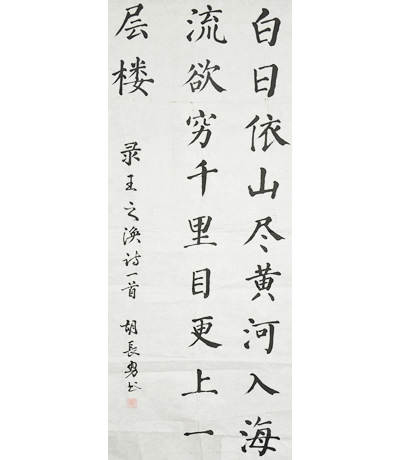 白日依山尽黄河入海
流欲穷千里目更上一
层楼
录王之涣诗一首
胡长勇书